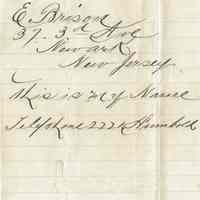 E Brison
37. 3rd Ave
Newark
New Jersey
this is my Name
Telfphone 222 Humbold